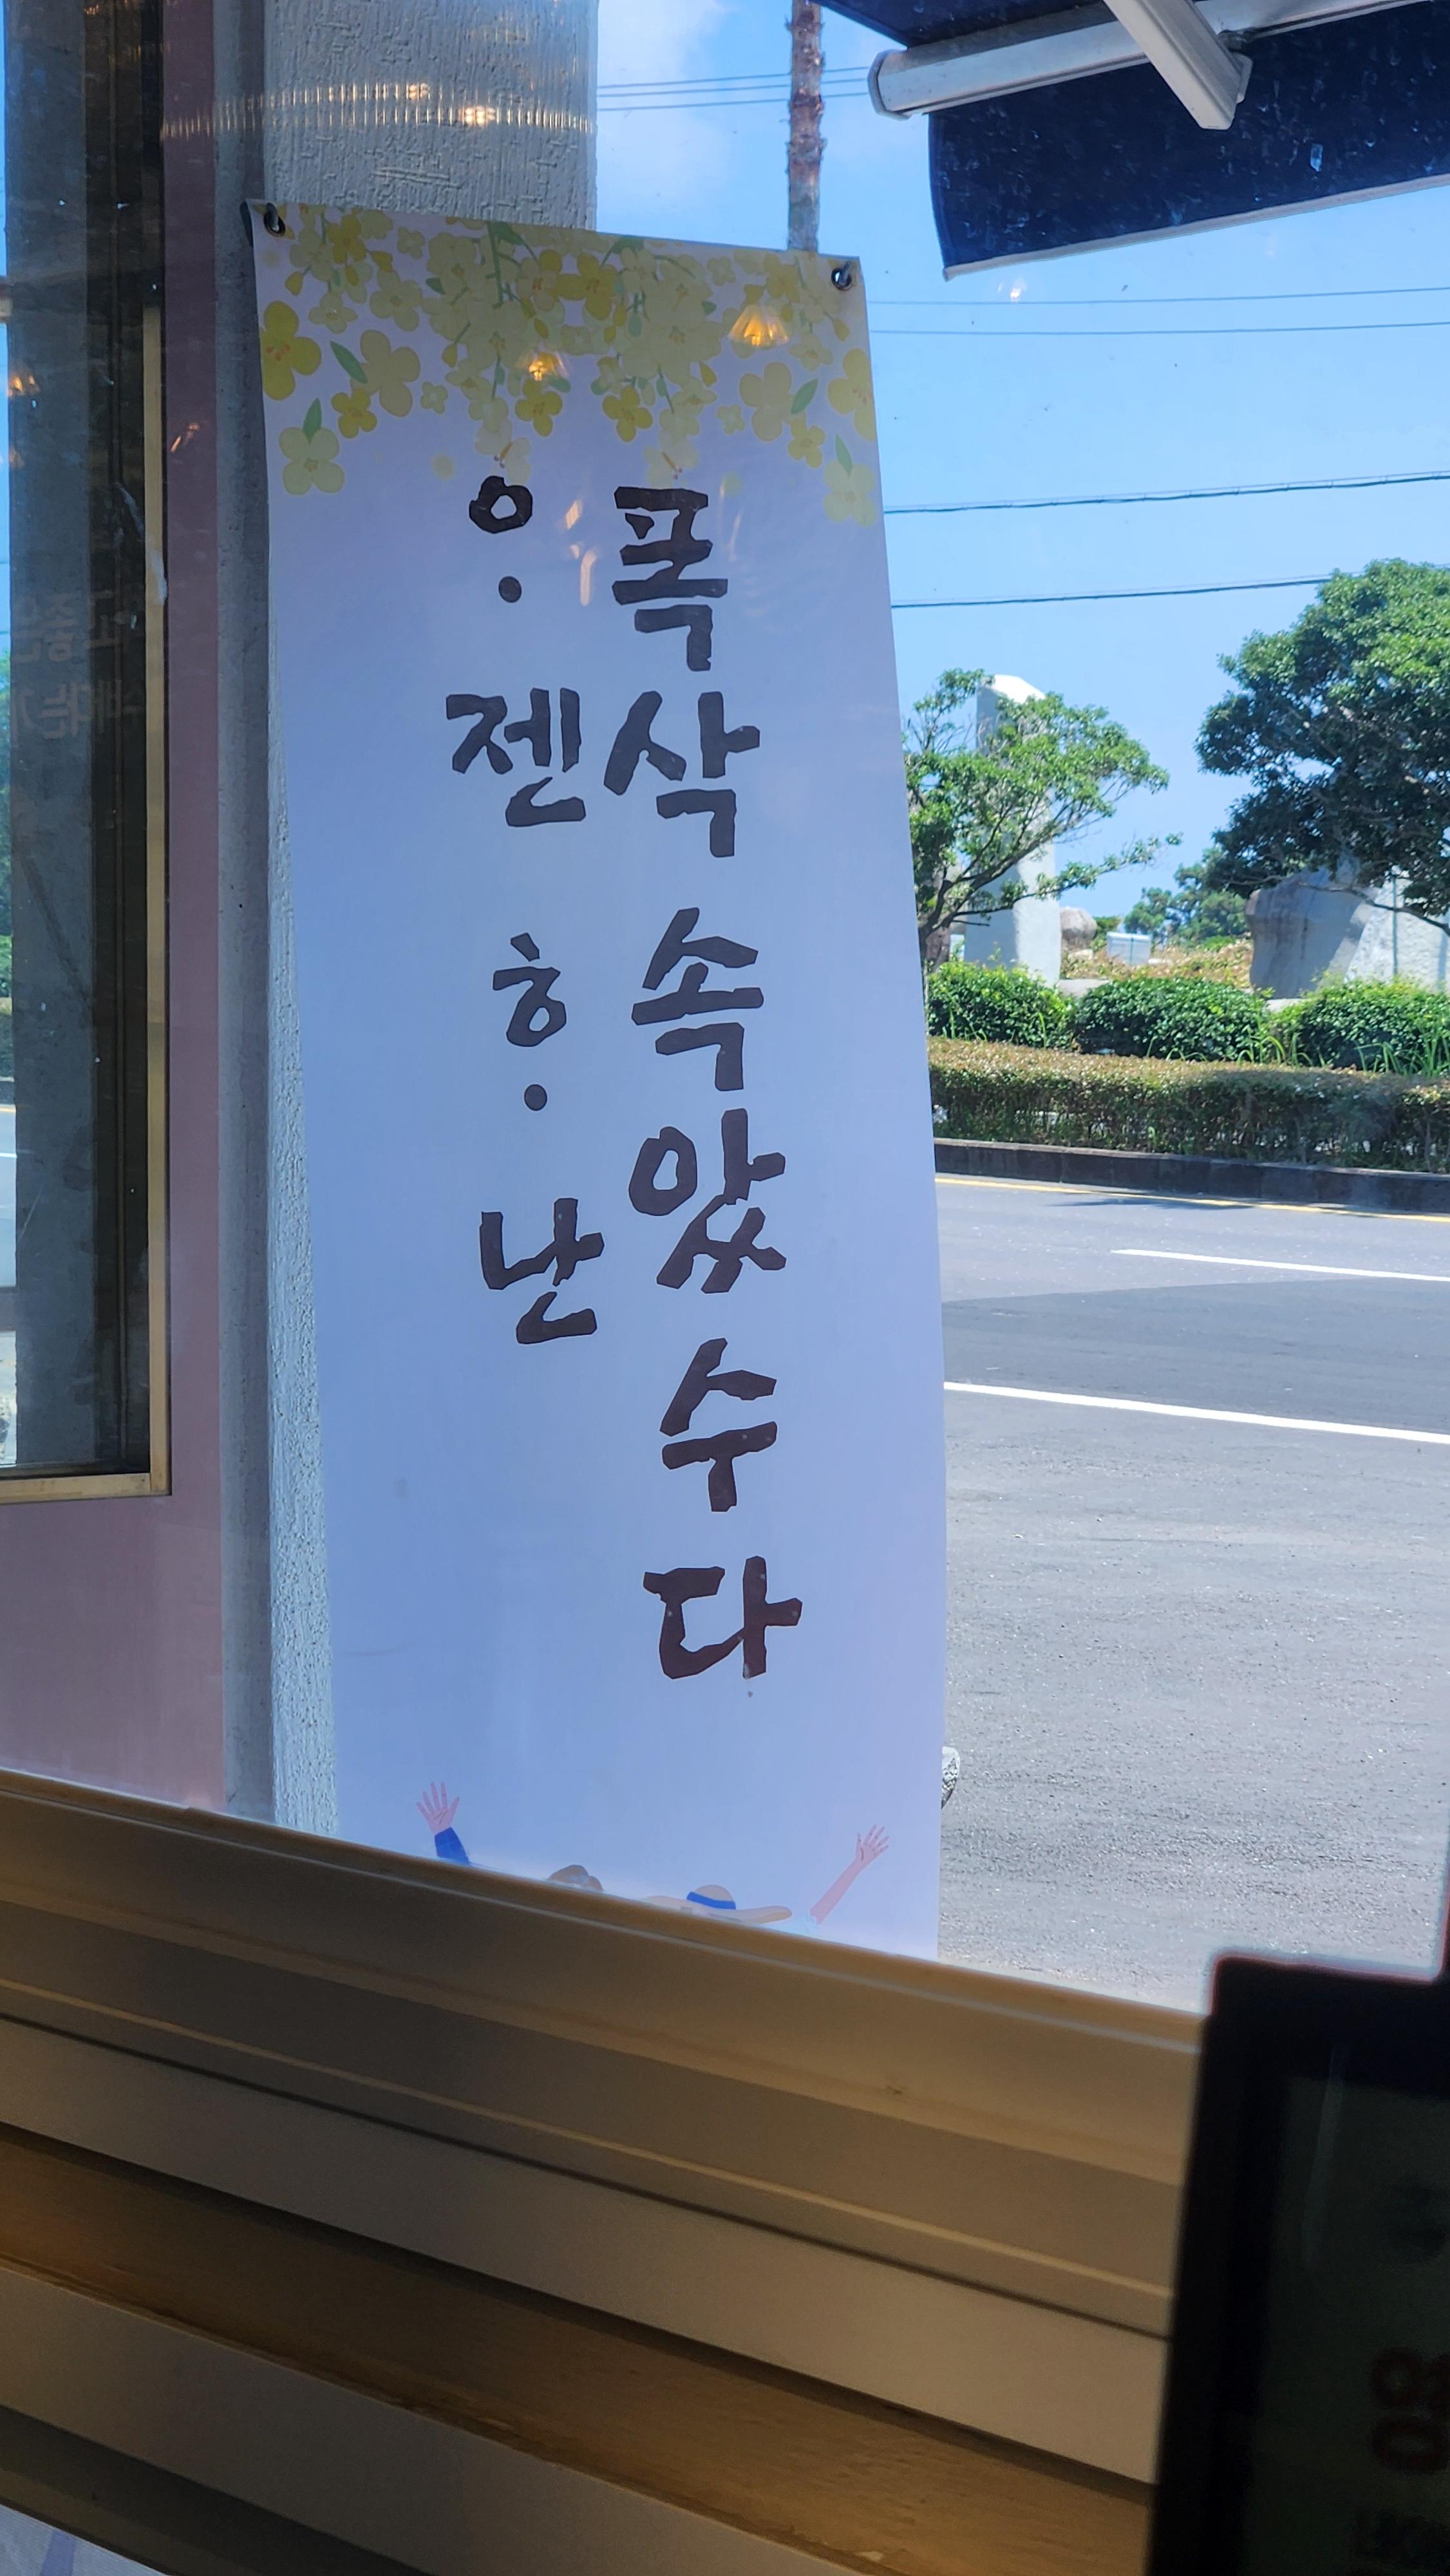 ᄋᆞ젠 ᄒᆞ난
폭삭 속았수다